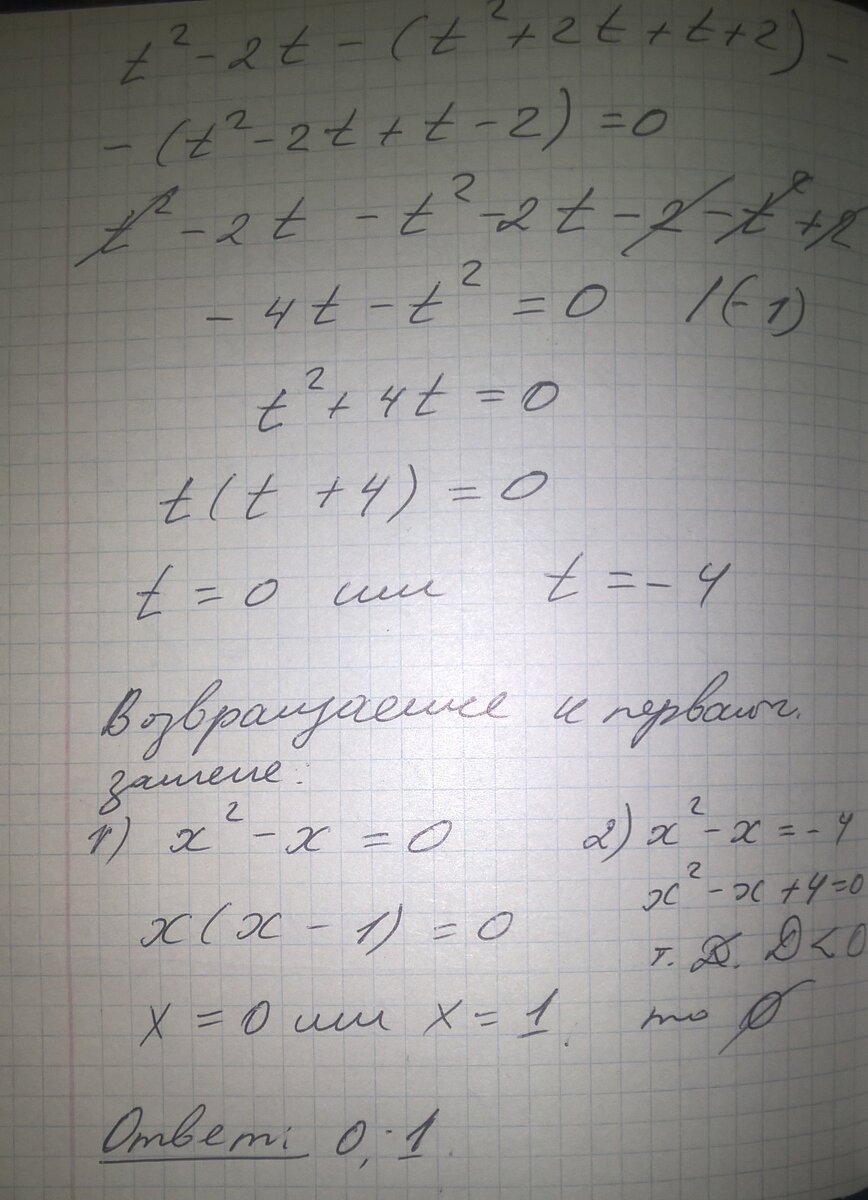 t² - 2t - (t² + 2t + t + 2) -
- (t² - 2t + t - 2) = 0
t² - 2t - t² - 2t - 2 - t² + 2
- 4t - t² = 0 /(-1)
t² + 4t = 0
t(t + 4) = 0
t = 0 или t = - 4
Возвращаемся к первонач.
замене:
1) x² - x = 0
x(x - 1) = 0
x = 0 или x = 1.
2) x² - x = - 4
x² - x + 4 = 0
т. к. D < 0
то ∅
Ответ: 0; 1.